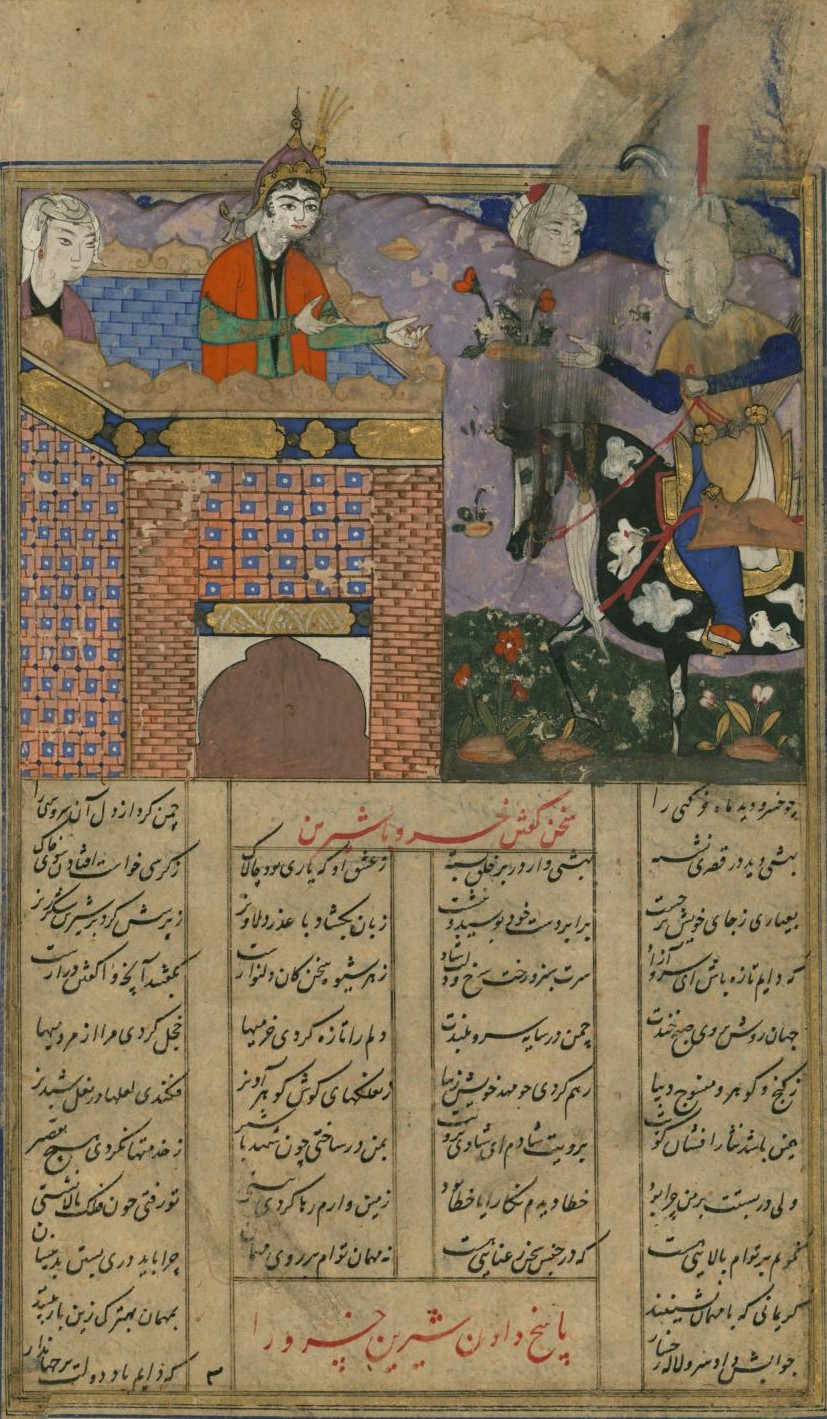 چو خسرو دید ماه خرگهی را
چمن کرد از دل آن سرو سهی را
سخن گفتن خسرو با شیرین
بهشتی دید در قصری نشسته
بهشتی وار در بر خلق بسته
ز عشق او که یاری بود چالاک
ز کرسی خواست افتادن سوی خاک
بعیاری ز جای خویش برجست
برابر دست خود بوسید و بنشست
زبان بگشاد با عذر دلاویز
ز پرسش کرد بر شیرین شکرریز
که دایم تازه باش ای سرو آزاد
سرت سبز و رخت سرخ و دلت شاد
ز هر شیوه سخن کان دلنواز است
بگفتند آنچه واگفتن دراز است
جهان روشن بروی صبح خندت
چمن در سایه سرو بلندت
دلم را تازه کردی خرمیها
خجل کردی مرا از مردمیها
ز گنج و گوهر و منسوج دیبا
رهم کردی چو مهد خویش زیبا
ز نعلکهای گوش گوهر آویز
فکندی لعلها در نعل شبدیز
همین باشد نثار افشان کویت
برویت شادم ای شادی برویت
بمن در ساختی چون شهد با شیر
ز خدمتها نکردی هیچ تقصیر
ولی در بستنت بر من چرا بود
خطا دیدم نگارا یا خطا بود
زمین وارم رها کردی به پستی
تو رفتی چون فلک بالا نشستی
نگویم بر توام بالایی هست
که در جنس سخن رعنایی هست
نه مهمان توام بر روی مهمان
چرا باید دری بستن بدینسان
کریمانی که با مهمان نشینند
بمهمان بهترک زین باز بینند
پاسخ دادن شیرین خسرو را
جوابش داد سرو لاله رخسار
که دایم باد دولت بر جهاندار